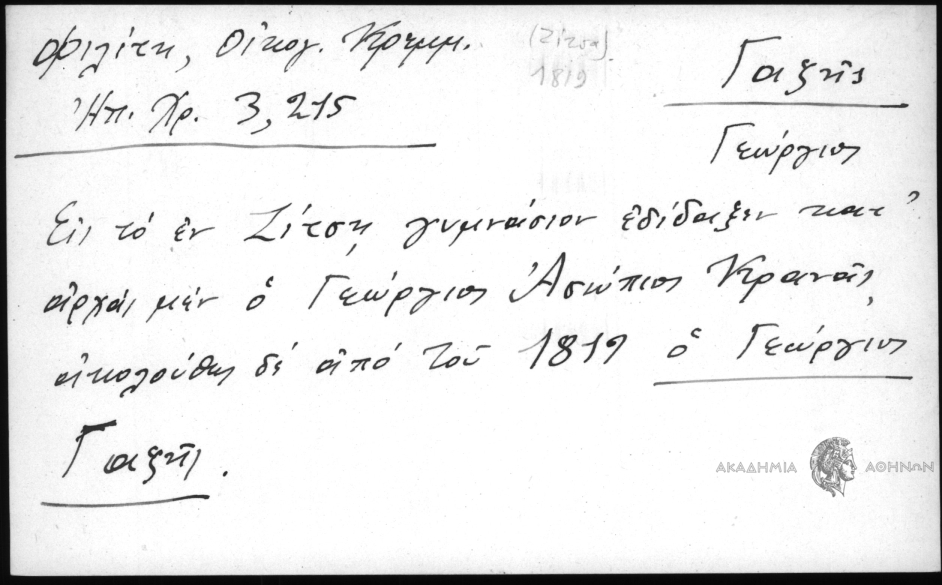 Φιλίτη, Οἰκογ. Κρυμμ.
(Ζίτσα)
1819
Γαζῆς
Ἠπ. Χρ. 3, 215
Γεώργιος
Εἰς τό ἐν Ζίτσῃ γυμνάσιον ἐδίδαξεν κατ'
ἀρχάς μέν ὁ Γεώργιος Ἀσώπιος Κρανᾶς,
ἀκολούθως δέ ἀπό τοῦ 1819 ὁ Γεώργιος
Γαζῆς.
ΑΚΑΔΗΜΙΑ ΑΘΗΝΩΝ